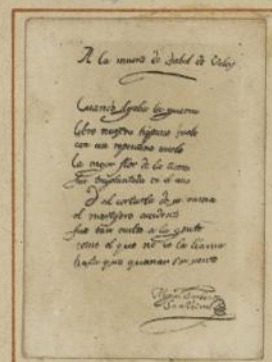 A la muerte de Isabel de Velos
Cuando
libre nuestro hispano suelo
con un repentino vuelo
la mejor flor de la tierra
fue trasplantada en el
Y al cortarla de su rama
el mortífero accidente
fue tan oculta a la gente
como el que no ve la llama
hasta que quemar se siente